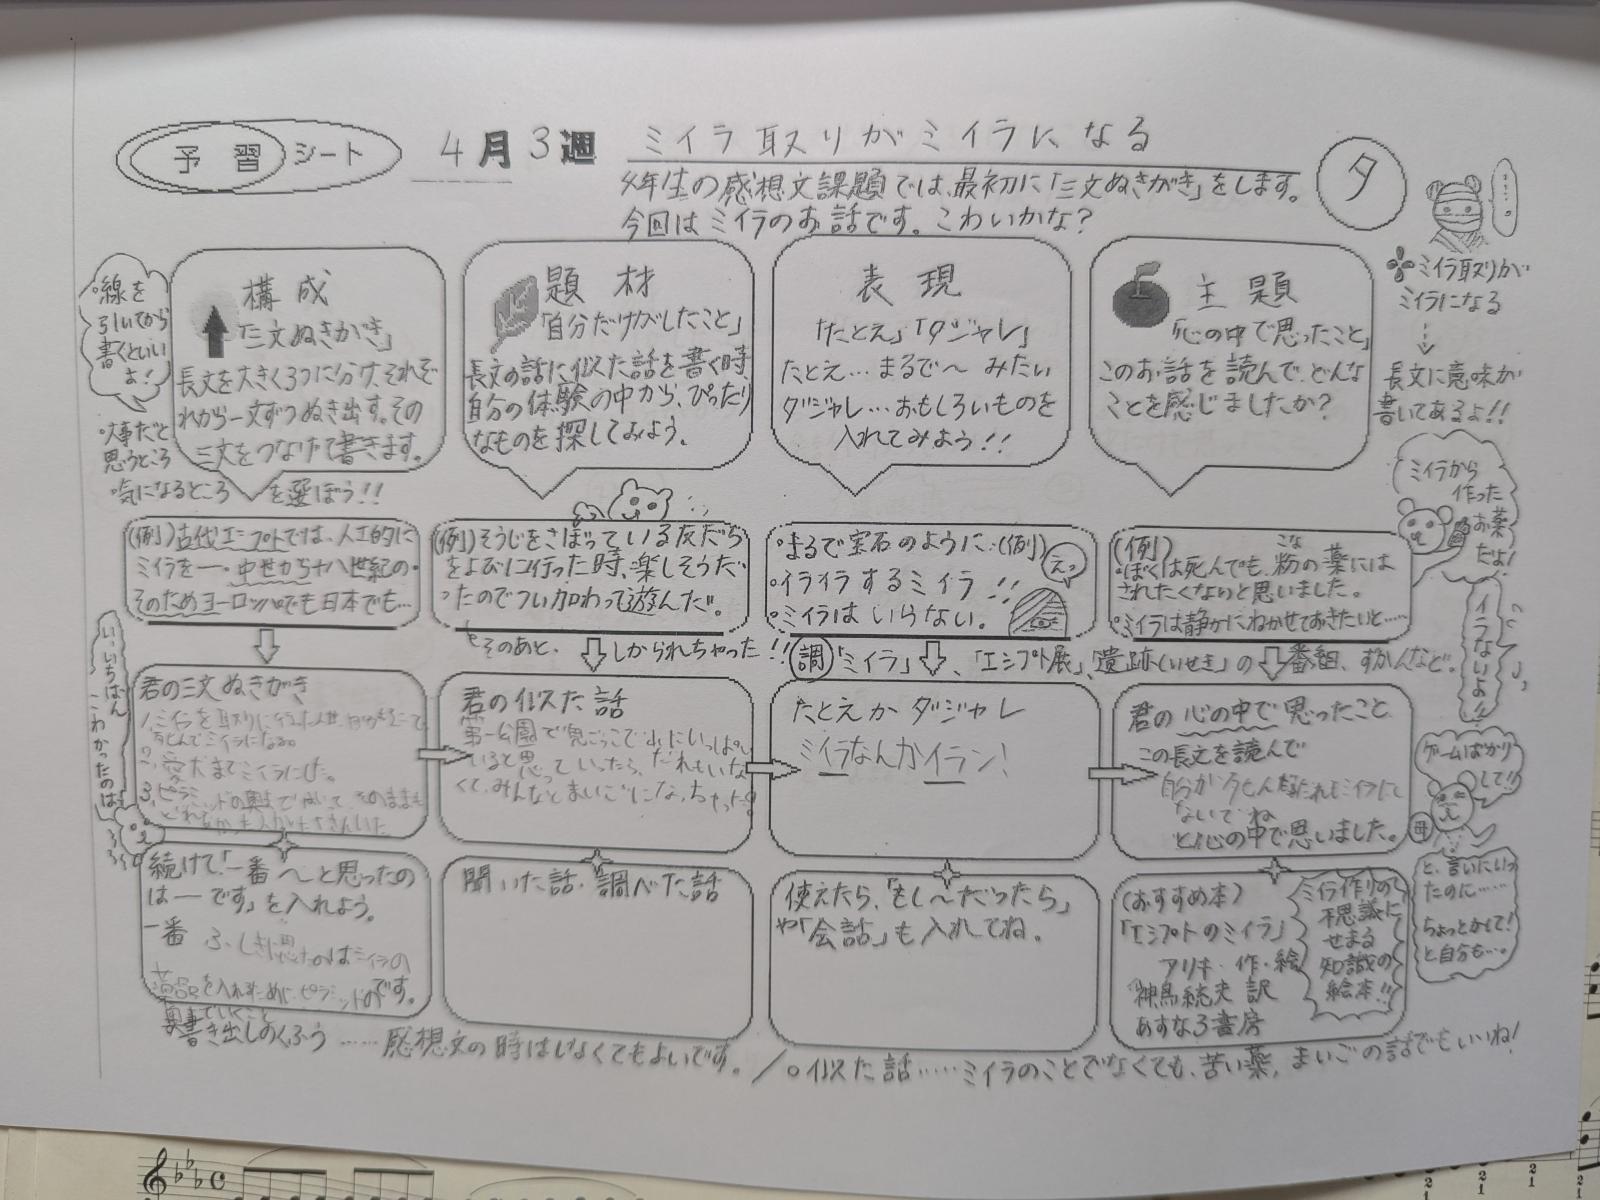 予習シート
4月3週
ミイラ取りがミイラになる
タ
4年生の感想文課題では、最初に「三文ぬきがき」をします。
今回はミイラのお話です。こわいかな?
・線を
引いてから
書くといい
よ!
・大事だと
思うところ
・気になるところ を選ぼう!!
構成
「三文ぬきがき」
長文を大きく3つに分け、それぞ
れから一文ずつぬき出す。その
三文をつなげて書きます。
題材
「自分だけがしたこと」
長文の話に似た話を書く時、
自分の体験の中から、ぴったり
なものを探してみよう。
表現
「たとえ」「ダジャレ」
たとえ…まるで〜みたい
ダジャレ…おもしろいものを
入れてみよう!!
主題
「心の中で思ったこと」
このお話を読んで、どんな
ことを感じましたか?
ミイラ取りが
ミイラになる
長文に意味が
書いてあるよ!!
ミイラから
作った
お薬
だよ!
(例)古代エジプトでは、人工的に
ミイラを―・中世から十八世紀の・
そのためヨーロッパでも日本でも…
(例)そうじをさぼっている友だち
をよびに行った時、楽しそうだ
ったのでつい加わって遊んだ。
そのあと、しかられちゃった!!
・まるで宝石のように…(例)
・イライラするミイラ!!
・ミイラはいらない。
えっ
(例)
・ぼくは死んでも、粉の薬には
こな
されたくないと思いました。
・ミイラは静かにねかせておきたいと……
調「ミイラ」、「エジプト展」、「遺跡(いせき)」の番組、ずかんなど。
いちばん
こわかったのは
イラないよ!!
君の三文ぬきがき
死んでミイラになる。
2,愛犬までミイラにした。
君の似た話
第一公園で鬼ごっこで
いると思っていったら、だれもいな
くて、みんなとまいごになっちゃった。
たとえかダジャレ
ミイラなんかイラン!
君の心の中で思ったこと
この長文を読んで
ないでね
と心の中で思いました。
ゲームばかり
して!!
母
と、言いたいっ
たのに……
ちょっとかして!
と自分も…。
続けて「一番〜と思ったの
は―です」を入れよう。
一番
です。
聞いた話・調べた話
使えたら、「もし〜だったら」
や「会話」も入れてね。
(おすすめ本)
「エジプトのミイラ」
アリキ・作・絵
神鳥統夫 訳
あすなろ書房
ミイラ作りの
不思議に
せまる
知識の
絵本!!
書き出しのくふう……感想文の時はしなくてもよいです。/○似た話……ミイラのことでなくても、苦い薬,まいごの話でもいいね!